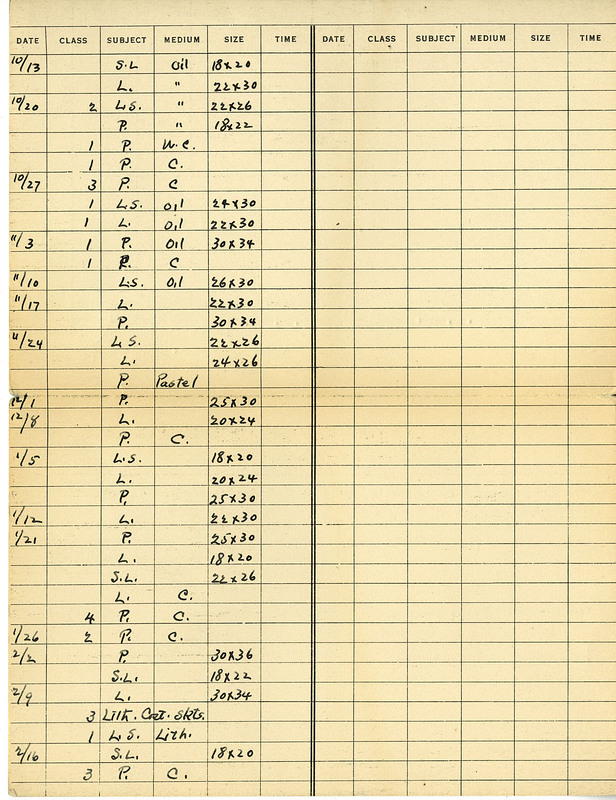 DATE CLASS SUBJECT MEDIUM SIZE TIME DATE CLASS SUBJECT MEDIUM SIZE TIME
10/13 S.L Oil 18x20
L. " 22x30
10/20 2 L.S. " 22x26
P. " 18x22
1 P. W.C.
1 P. C.
10/27 3 P. C
1 L.S. Oil 24x30
1 L. Oil 22x30
11/3 1 P. Oil 30x34
1 P. C
11/10 L.S. Oil 26x30
11/17 L. 22x30
P. 30x34
11/24 L.S. 22x26
L. 24x26
P. Pastel
12/1 P. 25x30
12/8 L. 20x24
P. C.
1/5 L.S. 18x20
L. 20x24
P. 25x30
1/12 L. 22x30
1/21 P. 25x30
L. 18x20
S.L. 22x26
L. C.
4 P. C.
1/26 2 P. C.
2/2 P. 30x36
S.L. 18x22
2/9 L. 30x34
3 Lith. Cat. Skts.
1 L.S. Lith.
2/16 S.L. 18x20
3 P. C.